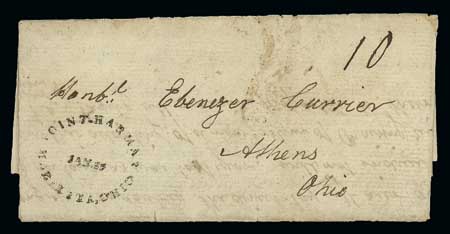 10
Honbl. Ebenezer Currier
Athens
Ohio
POINT-HARMAR OHIO
JAN.